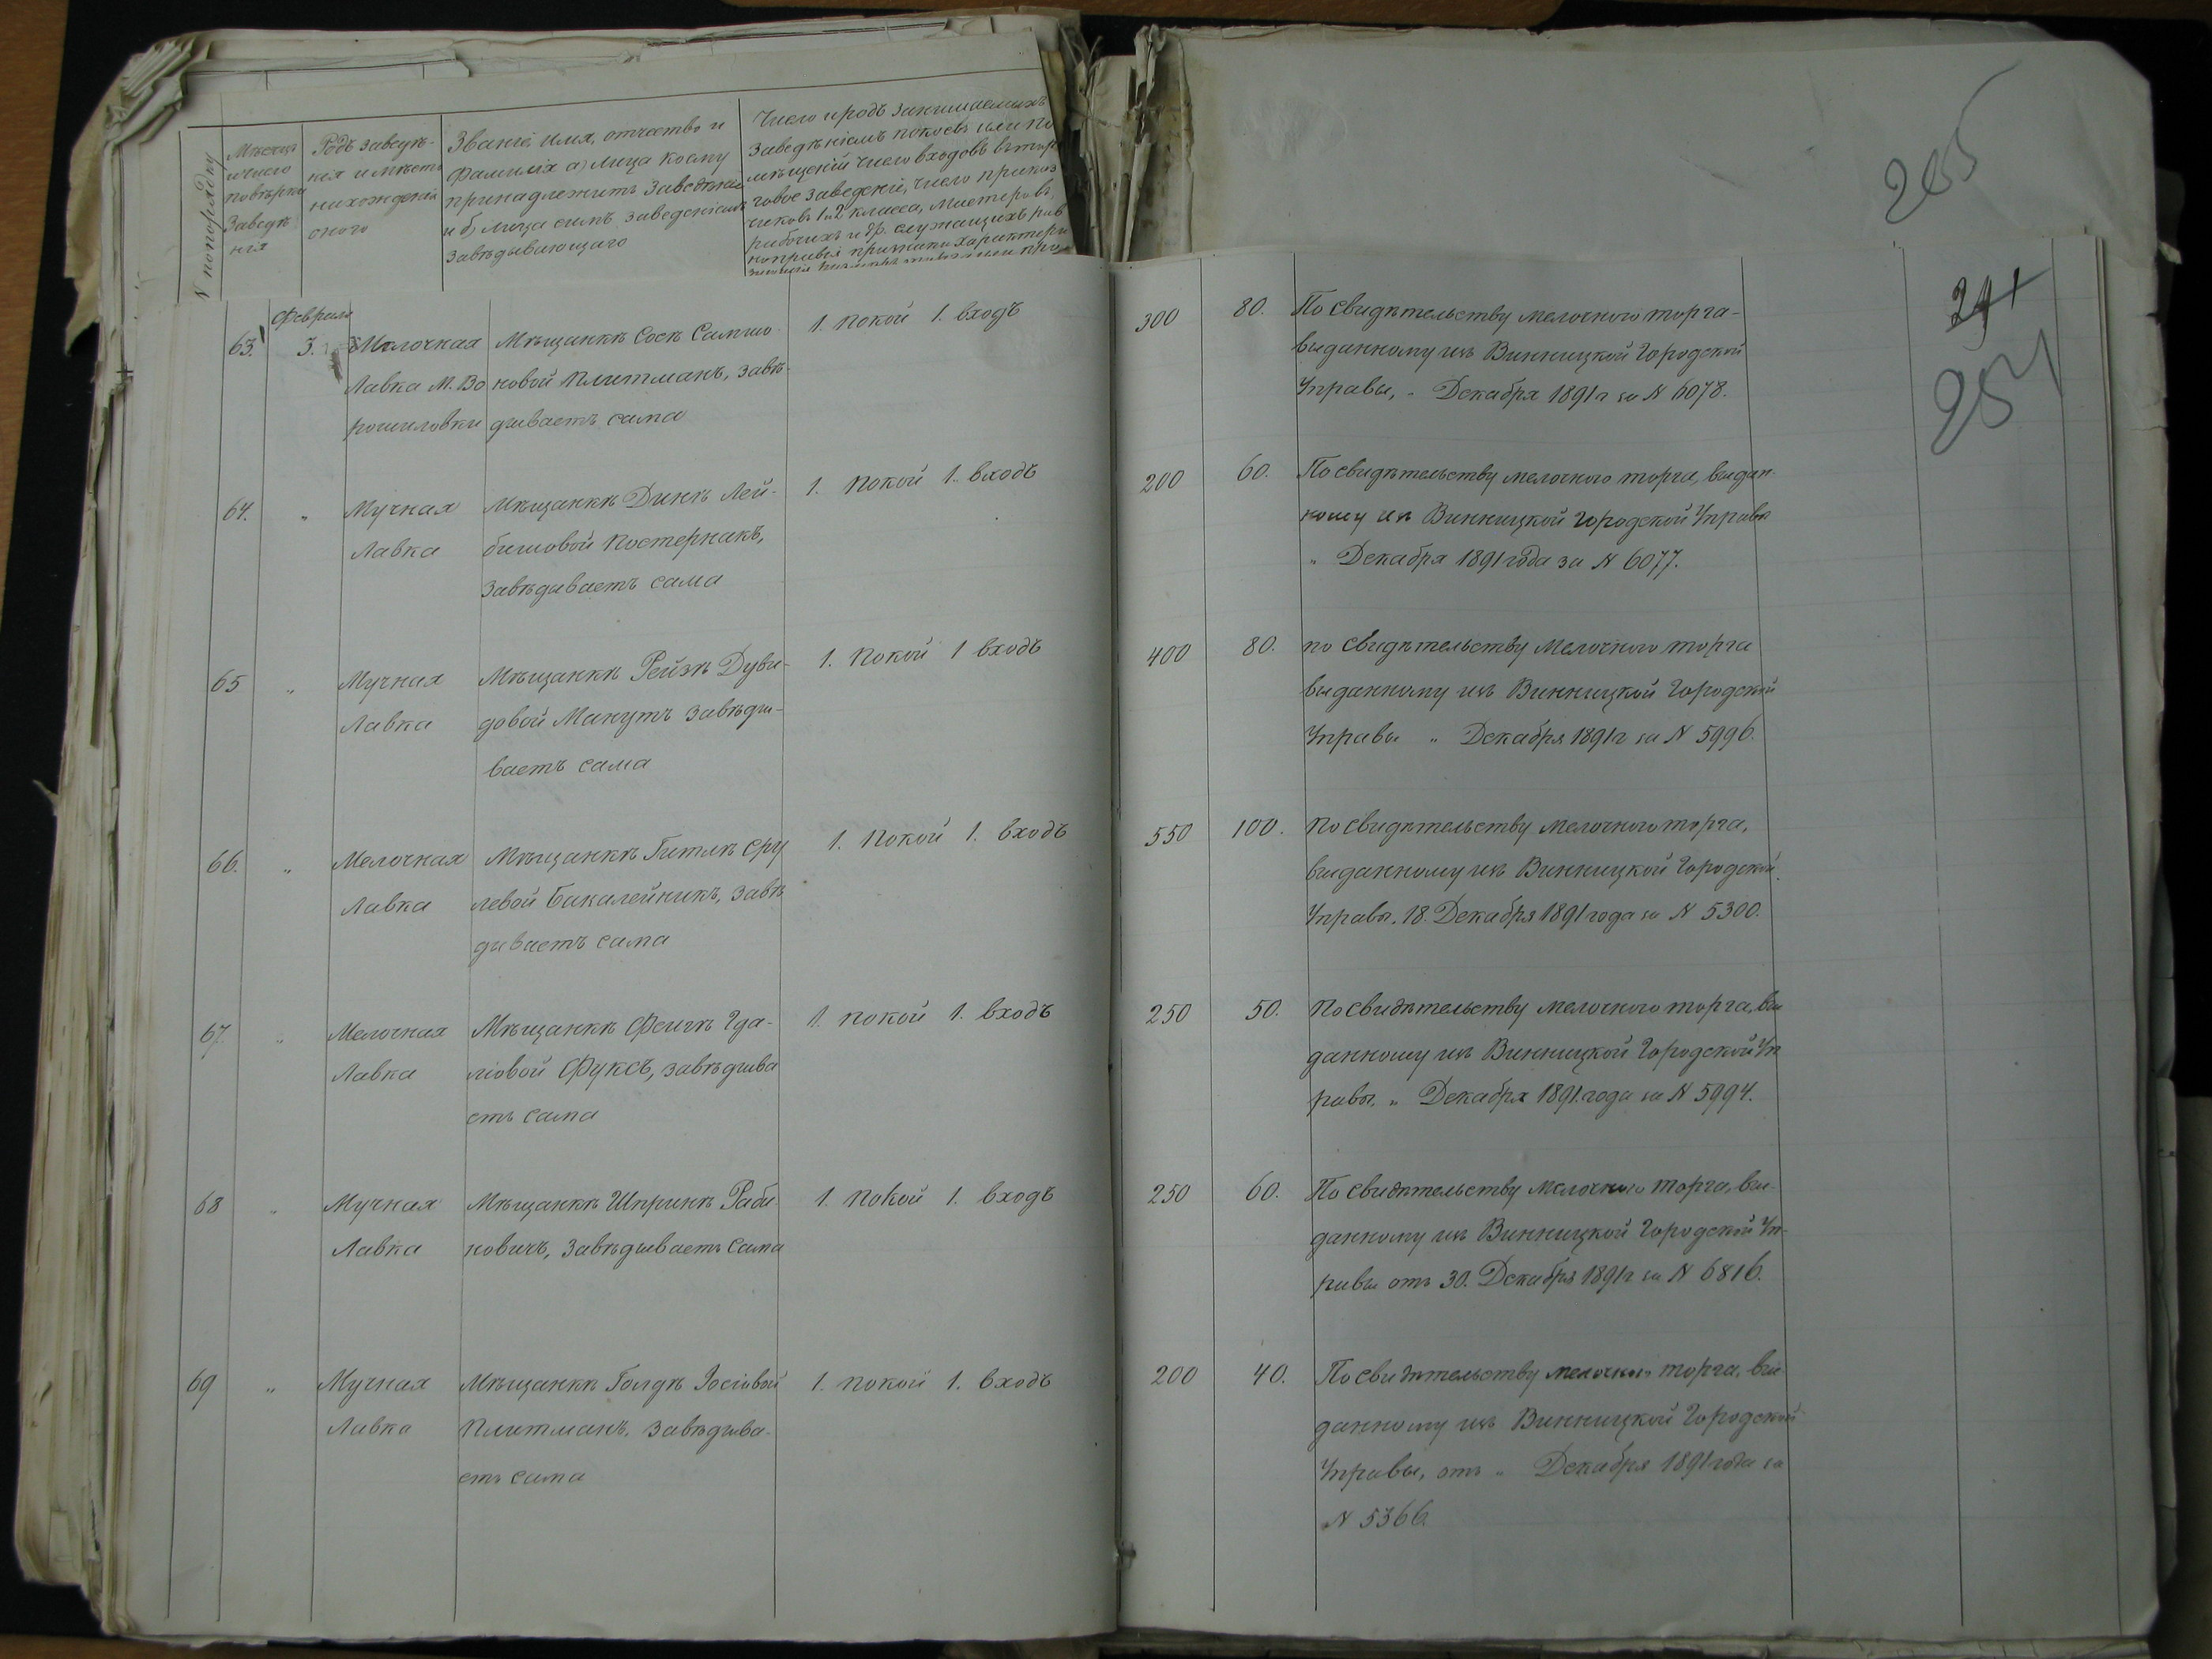 N по порядку
Мѣсяцъ
и число
повѣрки
Заведѣ
нія
Родъ заведѣ-
нія и мѣсто
нахожденія
оного
Званіе, имя, отчество и
фамилія а) лица коему
принадлежитъ заведѣніе
и б) лица симъ заведеніемъ
завѣдывающаго
Число и родъ занимаемыхъ
заведѣніемъ покоевъ или по
мѣщеній число входовъ въ тор
говое заведеніе, число приказ
чиковъ 1 и 2 класса, мастеровъ,
рабочихъ и др. служащихъ рав
265
291
257
63.
Февраля
3.
Мелочная
Лавка М. Во
рошиловки
Мѣщанкѣ Соскѣ Самшо
новой Плитманъ, завѣ-
дываетъ сама
1. покой 1. входъ
300
80.
По свидѣтельству мелочного торга-
выданному изъ Винницкой Городской
Управы, „ Декабря 1891 г за N 6078.
64.
„
Мучная
Лавка
Мѣщанкѣ Динѣ Лей-
бишовой Постернакъ,
завѣдываетъ сама
1. покой 1. входъ
200
60.
По свидѣтельству мелочного торга, выдан-
ному изъ Винницкой Городской Управы
„ Декабря 1891 года за N 6077.
65
„
Мучная
Лавка
Мѣщанкѣ Рейзѣ Дуви-
довой Манутъ завѣды-
ваетъ сама
1. покой 1 входъ
400
80.
по свидѣтельству мелочного торга
выданному изъ Винницкой Городской
Управы „ Декабря 1891 г за N 5996.
66.
„
Мелочная
Лавка
Мѣщанкѣ Гитлѣ Сру
левой Бакалейникъ, завѣ
дываетъ сама
1. покой 1. входъ
550
100.
По свидѣтельству мелочного торга,
выданному изъ Винницкой Городской
Управы. 18. Декабря 1891 года за N 5300.
67.
„
Мелочная
Лавка
Мѣщанкѣ Фейгѣ Гда-
ліовой Фуксъ, завѣдыва
етъ сама
1. покой 1. входъ
250
50.
По свидѣтельству мелочного торга, вы
данному изъ Винницкой Городской Уп
равы, „ Декабря 1891 года за N 5994.
68
„
Мучная
Лавка
Мѣщанкѣ Шпринѣ Раби-
новичъ, завѣдываетъ сама
1. покой 1. входъ
250
60.
По свидѣтельству мелочного торга, вы-
данному изъ Винницкой Городской Уп-
равы отъ 30. Декабря 1891 г за N 6816.
69
„
Мучная
Лавка
Мѣщанкѣ Голдѣ Іосіовой
Плитманъ, завѣдыва-
етъ сама
1. покой 1. входъ
200
40.
По свидѣтельству мелочного торга, вы-
данному изъ Винницкой Городской
Управы, отъ „ Декабря 1891 года за
N 5366.